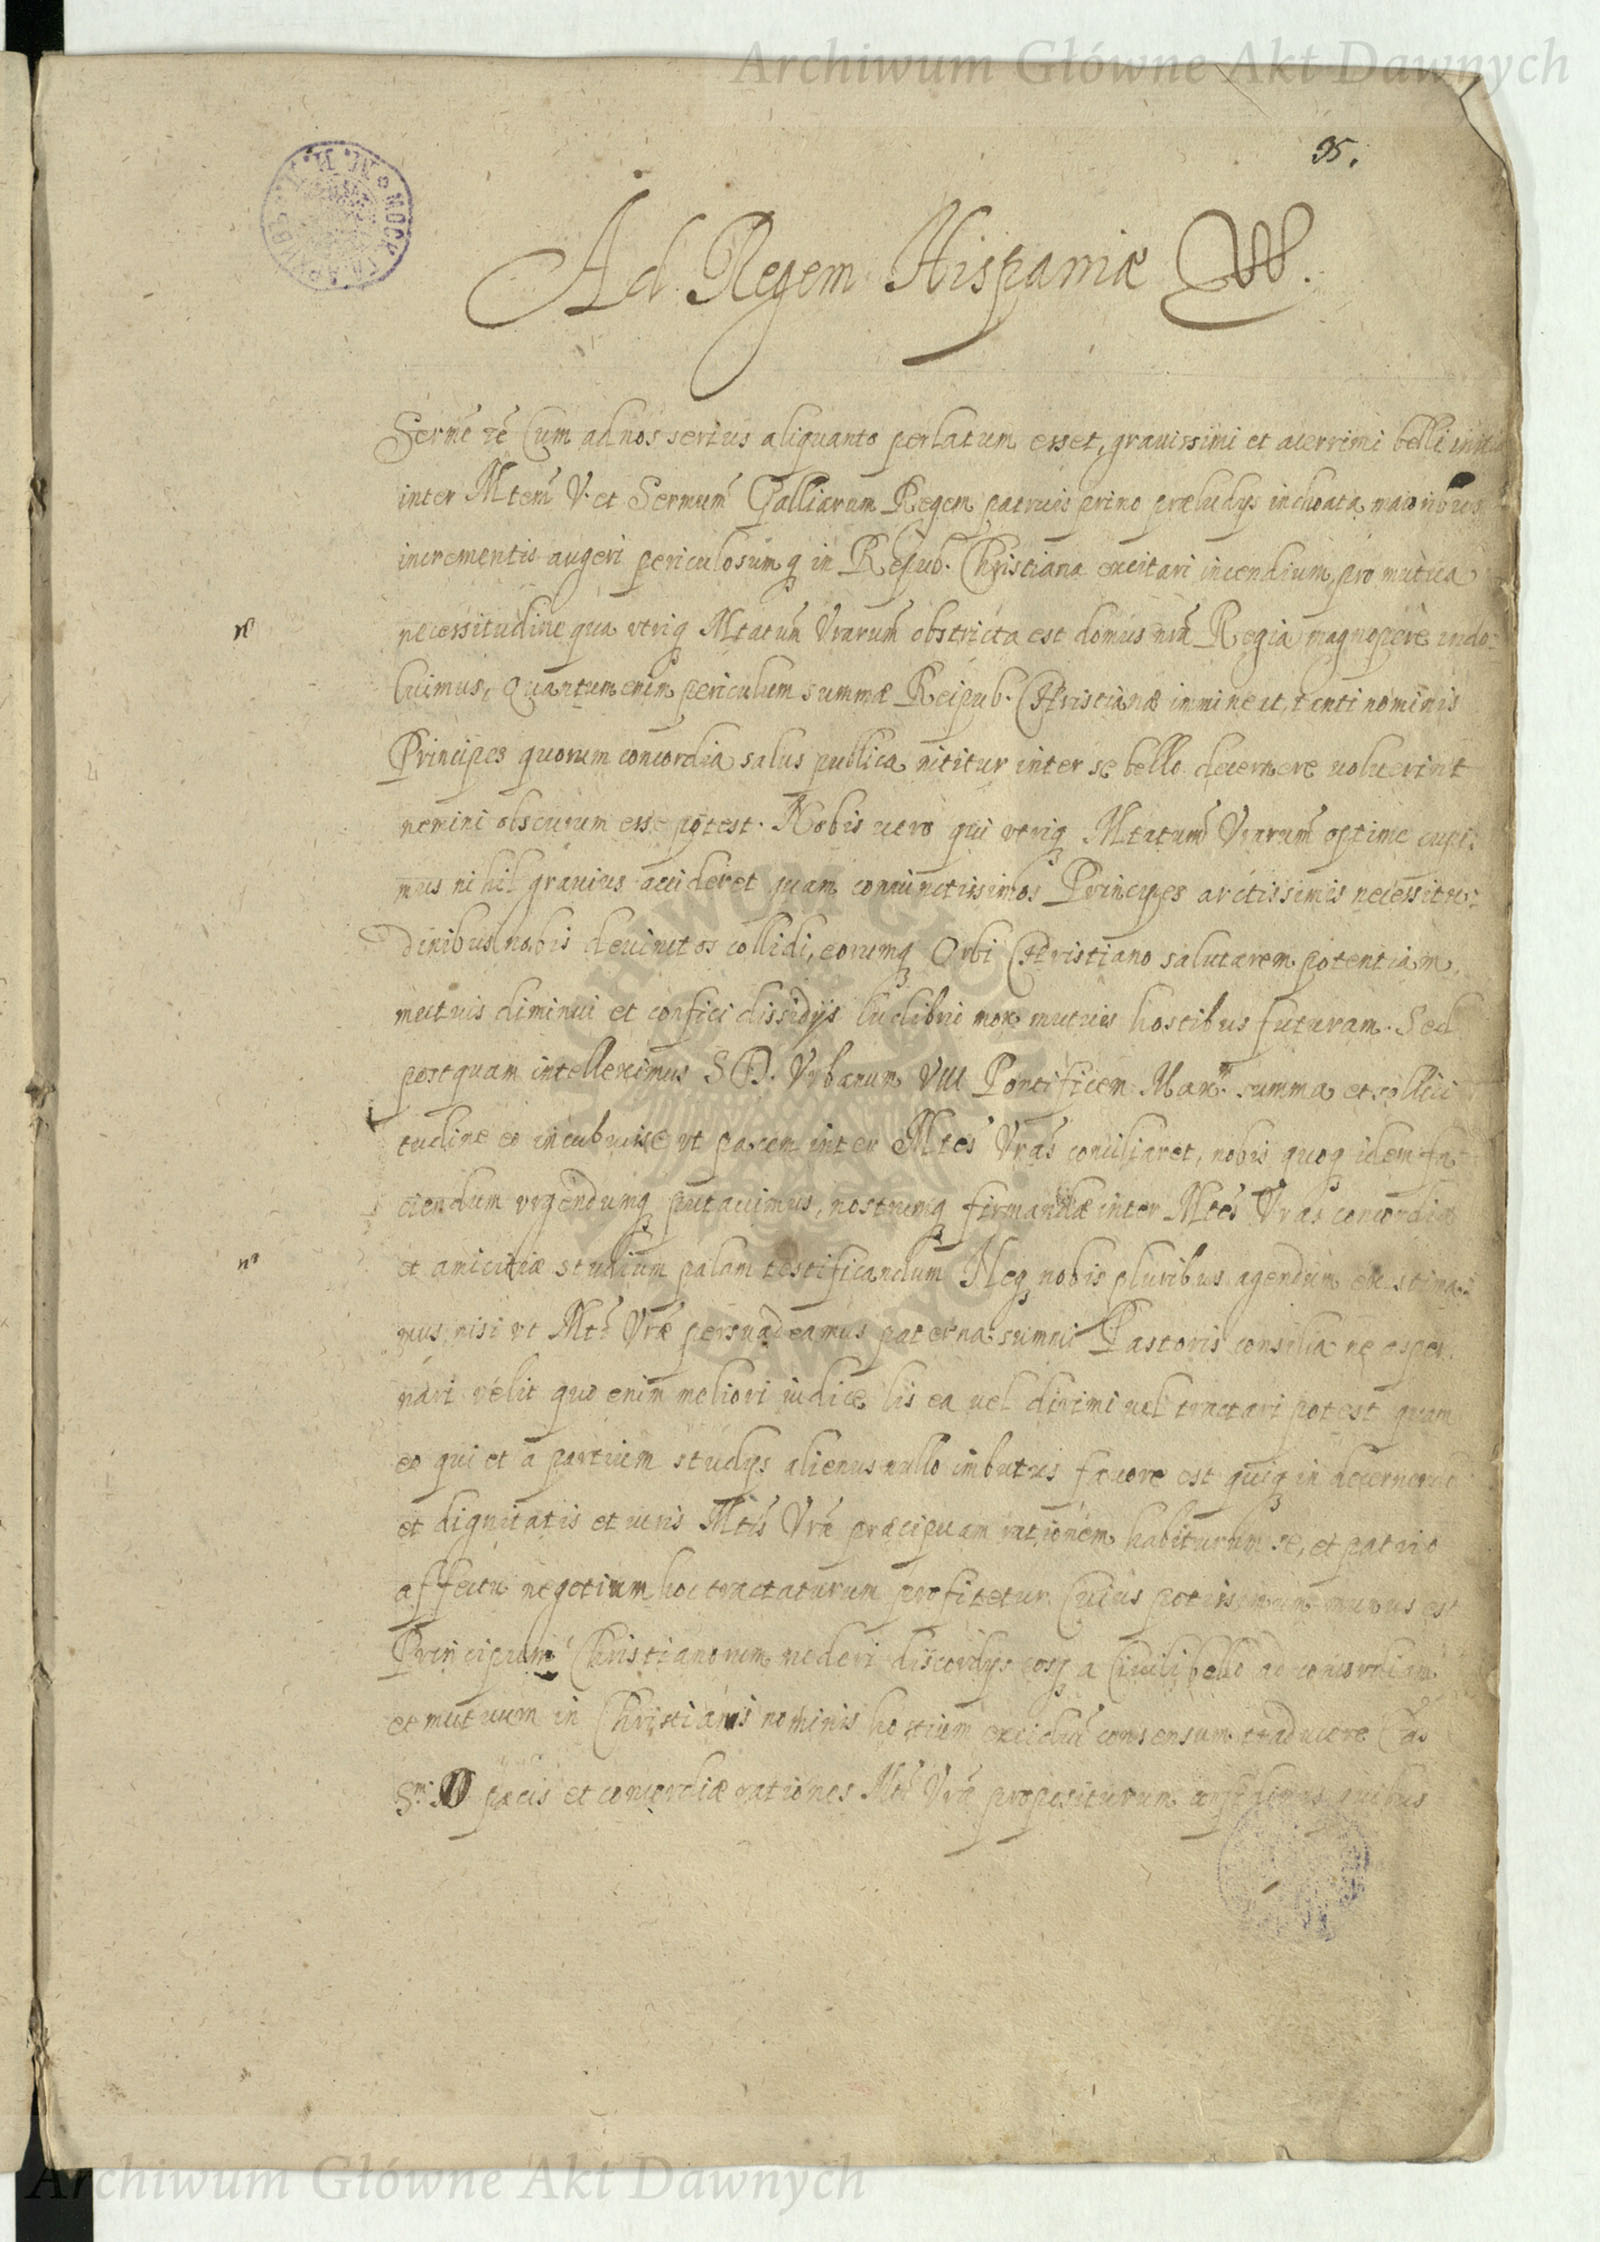 Archiwum Główne Akt Dawnych
95.
Ad Regem Hispaniæ
Serme̅ re̅ Cum ad nos serius aliquanto perlatum esset, grauissimi et acerrimi belli initia
inter Mtem̅ V. et Sermum̅ Galliarum Regem paruis primo præludys inchoata maioribus
incrementis augeri periculosumq in Repub. Christiana excitari incendium, pro mutua
necessitudine qua vtriq Mtatum̅ Vrarum̅ obstricta est domus nr̅a Regia magnopere indo-
luimus, Quantum enim periculum summæ Reipub. Christianæ immineat, tanti nominis
Principes quorum concordia salus publica nititur inter se bello decernere uoluerint
nemini obscurum esse potest. Nobis uero qui vtriq Mtatum̅ Vrarum̅ optime cupi-
mus nihil grauius accideret quam coniunctissimos Principes arctissimis necessitu-
dinibus nobis deuinctos collidi, eorumq Orbi Christiano salutarem potentiam
mutuis diminui et confici dissidys ludibrio mox mutuis hostibus futuram. Sed
postquam intelleximus S D. Vrbanum VIII Pontificem Maxm. summa et sollici
tudine eo incubuisse vt pacem inter Mtes̅ Vras̅ conciliaret, nobis quoq idem fa
ciendum vrgendumq putauimus, nostrumq firmandæ inter Mtes̅ Vras̅ concordiæ
et amicitiæ studium palam testificandum Neq nobis pluribus agendum existima-
mus, nisi vt Mti̅ Vræ̅ persuadeamus paterna summi Pastoris consilia ne asper-
nari velit quo enim meliori iudice lis ea uel dirimi uel tractari potest quam
eo qui et a partium studys alienus nullo imbutus fauore est quiq in decernendo
et dignitatis et iuris Mtis̅ Vræ̅ præcipuam rationem habiturum se, et patrio
affectu negotium hoc tractaturum profitetur. Cuius potissimum munus est
Principum Christianorum mederi discordys eosq a Ciuili bello ad concordiam
et mutuum in Christiani nominis hostium excidiu̅ consensum traducere Eas
Sm. D pacis et concordiæ rationes Mti̅ Vræ̅ propositurum quibus
Archiwum Główne Akt Dawnych